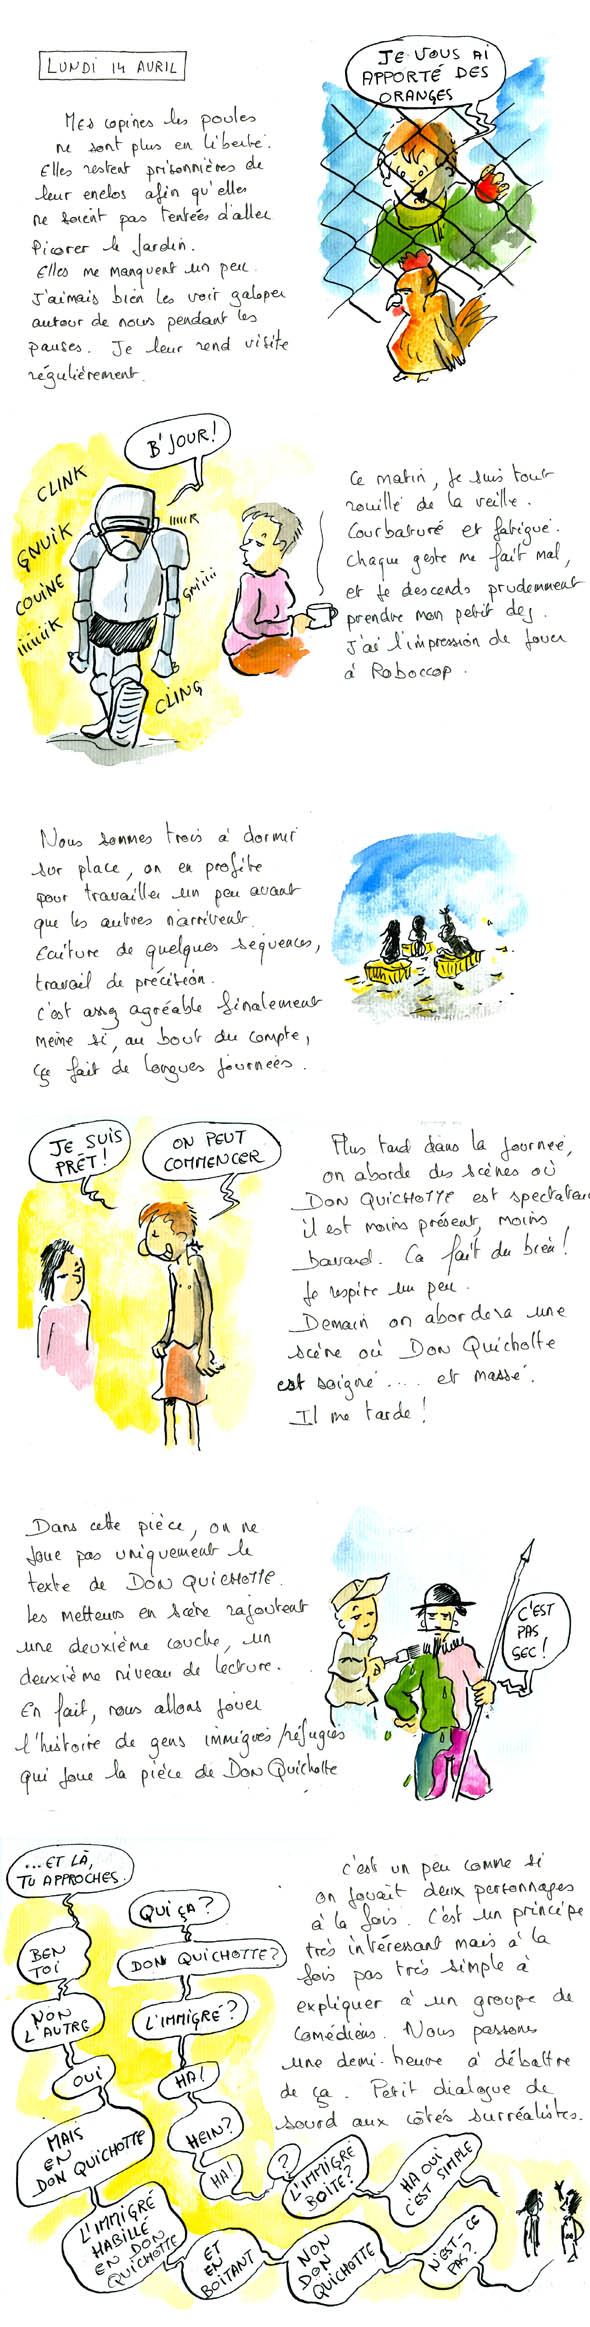 LUNDI 14 AVRIL
JE VOUS AI
APPORTÉ DES
ORANGES
Mes copines les poules
ne sont plus en liberté.
Elles restent prisonnières de
leur enclos afin qu'elles
ne soient pas tentées d'aller
picorer le jardin.
Elles me manquent un peu.
J'aimais bien les voir galoper
autour de nous pendant les
pauses. Je leur rend visite
régulièrement.
B'JOUR!
CLINK
GNUIK
COUINE
iiiiiiK
iiiiiiR
Gniiiii
CLING
Ce matin, je suis tout
rouillé de la veille.
Courbaturé et fatigué.
Chaque geste me fait mal,
et je descends prudemment
prendre mon petit dej.
J'ai l'impression de jouer
à Robocop.
Nous sommes trois à dormir
sur place, on en profite
pour travailler un peu avant
que les autres n'arrivent.
Ecriture de quelques séquences,
travail de précision.
C'est assez agréable finalement
même si, au bout du compte,
ça fait de longues journées.
JE SUIS
PRÊT!
ON PEUT
COMMENCER
Plus tard dans la journée,
on aborde des scènes où
DON QUICHOTTE est spectateur
il est moins présent, moins
bavard. Ca fait du bien!
Je respire un peu.
Demain on abordera une
scène où Don Quichotte
est soigné.... et massé.
Il me tarde!
Dans cette pièce, on ne
joue pas uniquement le
texte de DON QUICHOTTE.
Les metteurs en scène rajoutent
une deuxième couche, un
deuxième niveau de lecture.
En fait, nous allons jouer
l'histoire de gens immigrés/réfugiés
qui joue la pièce de Don Quichotte
C'EST
PAS
SEC!
...ET LÀ,
TU APPROCHES.
QUI ÇA?
BEN
TOI
DON QUICHOTTE?
NON
L'AUTRE
L'IMMIGRÉ?
OUI
HA!
MAIS
EN
DON QUICHOTTE
HEIN?
HA!
L'IMMIGRÉ
HABILLÉ
EN DON
QUICHOTTE
?
ET
EN
BOITANT
L'IMMIGRÉ
BOITE?
NON
DON
QUICHOTTE
HA OUI
C'EST SIMPLE
N'EST-CE
PAS?
C'est un peu comme si
on jouait deux personnages
à la fois. C'est un principe
très intéressant mais à la
fois pas très simple à
expliquer à un groupe de
comédiens. Nous passons
une demi-heure à débattre
de ça. Petit dialogue de
sourd aux côtés surréalistes.